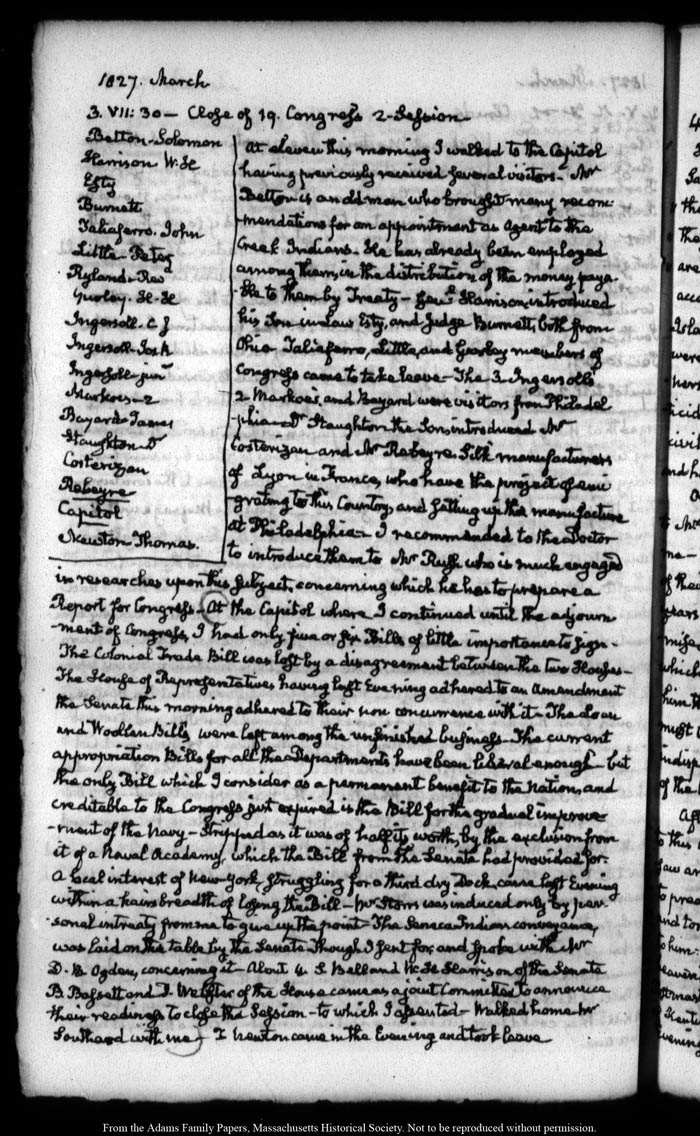 1827. March
3. VII: 30 — Close of 19. Congress 2. Session
Betton. Solomon
Harrison W. H
Esty
Burnett
Taliaferro. John
Little. Peter
Ryland. Revd
Gurley. H. H
Ingersoll. C J
Ingersoll. Jos. R
Ingersoll. junr
Markoes. 2
Bayard James
Staughton Dr
Costerizan
Rebeyre
Capitol
Newton Thomas.
At eleven this morning I walked to the Capitol
having previously received several visitors. Mr
Betton is an old man who brought many recom-
-mendations for an appointment as Agent to the
Creek Indians. He has already been employed
among them, in the distribution of the money paya-
-ble to them by Treaty — Genl. Harrison introduced
his Son in Law Esty, and Judge Burnett, both from
Ohio. Taliaferro, Little, and Gurley members of
Congress came to take leave — The 3 Ingersolls
2 Markoes, and Bayard were visitors from Philadel-
-phia — Dr Staughton the Son introduced Mr
Costerizan and Mr Rebeyre, Silk manufacturers
of Lyon in France, who have the project of emi-
-grating to this Country, and setting up the manufacture
at Philadelphia — I recommended to the Doctor
to introduce them to Mr Rush who is much engaged
in researches upon this subject, concerning which he has to prepare a
Report for Congress — At the Capitol where I continued until the adjourn-
-ment of Congress, I had only five or six Bills of little importance to sign.
The Colonial Trade Bill was lost by a disagreement between the two Houses—
The House of Representatives having last Evening adhered to an Amendment
the Senate this morning adhered to their non concurrence with it — The
and Woollen Bills, were left among the unfinished business — The current
appropriation Bills for all the Departments have been liberal enough — but
the only Bill which I consider as a permanent benefit to the Nation, and
creditable to the Congress just expired is the Bill for the gradual improve-
-ment of the Navy — Stripped as it was of half its worth, by the exclusion from
it of a Naval Academy, which the Bill from the Senate had provided for.
A local interest of New-York, struggling for a third dry Dock, came last Evening
within a hairs breadth of losing the Bill — Mr Storrs was induced only by per-
-sonal intreaty from me to give up the point — The Seneca Indian conveyance,
was laid on the table by the Senate though I sent for, and spoke with Mr
D. B. Ogden, concerning it — About 4. S Bell and W. H Harrison of the Senate
B. Bassett and D. Webster of the House came as a joint Committee to announce
their readiness to close the Session — to which I assented — Walked home. Mr
Southard with me — T Newton came in the Evening and took leave
From the Adams Family Papers, Massachusetts Historical Society. Not to be reproduced without permission.